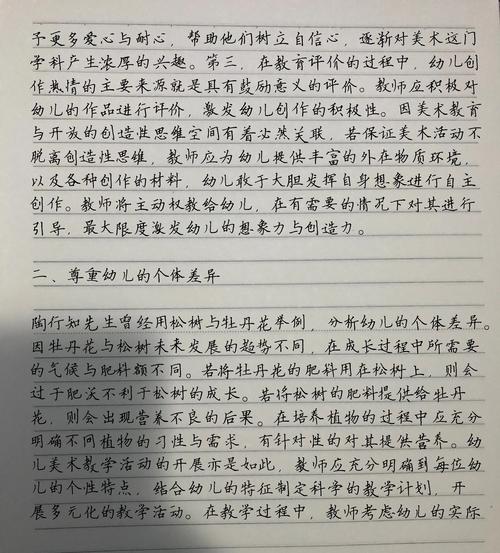 予更多爱心与耐心，帮助他们树立自信心，逐渐对美术这门
学科产生浓厚的兴趣。第三，在教育评价的过程中，幼儿创
作热情的主要来源就是具有鼓励意义的评价。教师应积极对
幼儿的作品进行评价，激发幼儿创作的积极性。因美术教育
与开放的创造性思维空间有着必然关联，若保证美术活动不
脱离创造性思维，教师应为幼儿提供丰富的外在物质环境，
以及各种创作的材料，幼儿敢于大胆发挥自身想象进行自主
创作。教师将主动权教给幼儿，在有需要的情况下对其进行
引导，最大限度激发幼儿的想象力与创造力。
二、尊重幼儿的个体差异
陶行知先生曾经用松树与牡丹花举例，分析幼儿的个体差异。
因牡丹花与松树未来发展的趋势不同，在成长过程中所需要
的气候与肥料额不同。若将牡丹花的肥料用在松树上，则会
过于肥沃不利于松树的成长。若将松树的肥料提供给牡丹
花，则会出现营养不良的后果。在培养植物的过程中应充分
明确不同植物的习性与需求，有针对性的对其提供营养。幼
儿美术教学活动的开展亦是如此，教师应充分明确到每位幼
儿的个性特点，结合幼儿的特征制定科学的教学计划，开
展多元化的教学活动。在教学过程中，教师考虑幼儿的实际